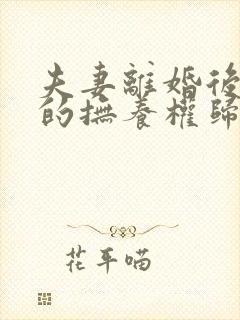 夫妻離婚後
的撫養權歸
花平喵